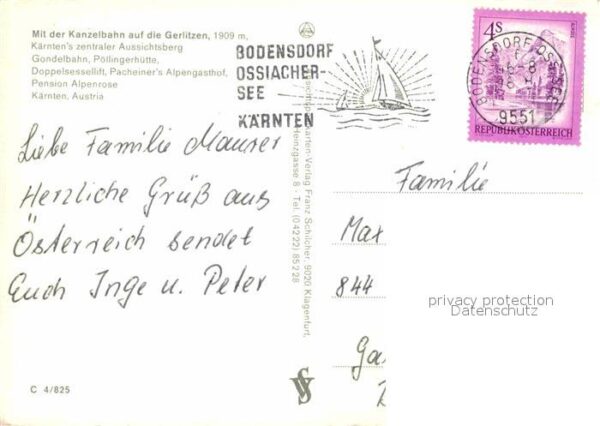 Mit der Kanzelbahn auf die Gerlitzen, 1909 m,
Kärnten's zentraler Aussichtsberg
Gondelbahn, Pöllingerhütte,
Doppelsessellift, Pacheiner's Alpengasthof,
Pension Alpenrose
Kärnten, Austria
BODENSDORF
OSSIACHER-
SEE
KÄRNTEN
4S
REPUBLIK ÖSTERREICH
BODENSDORF/OSS. SEE
9551
Liebe Familie Maurer
Herzliche Grüß aus
Österreich sendet
Euch Inge u. Peter
Verlag Franz Schilcher, 9020 Klagenfurt,
Heinzgasse 8 · Tel. (04222) 85228
Familie
Max
844
privacy protection
Datenschutz
C 4/825